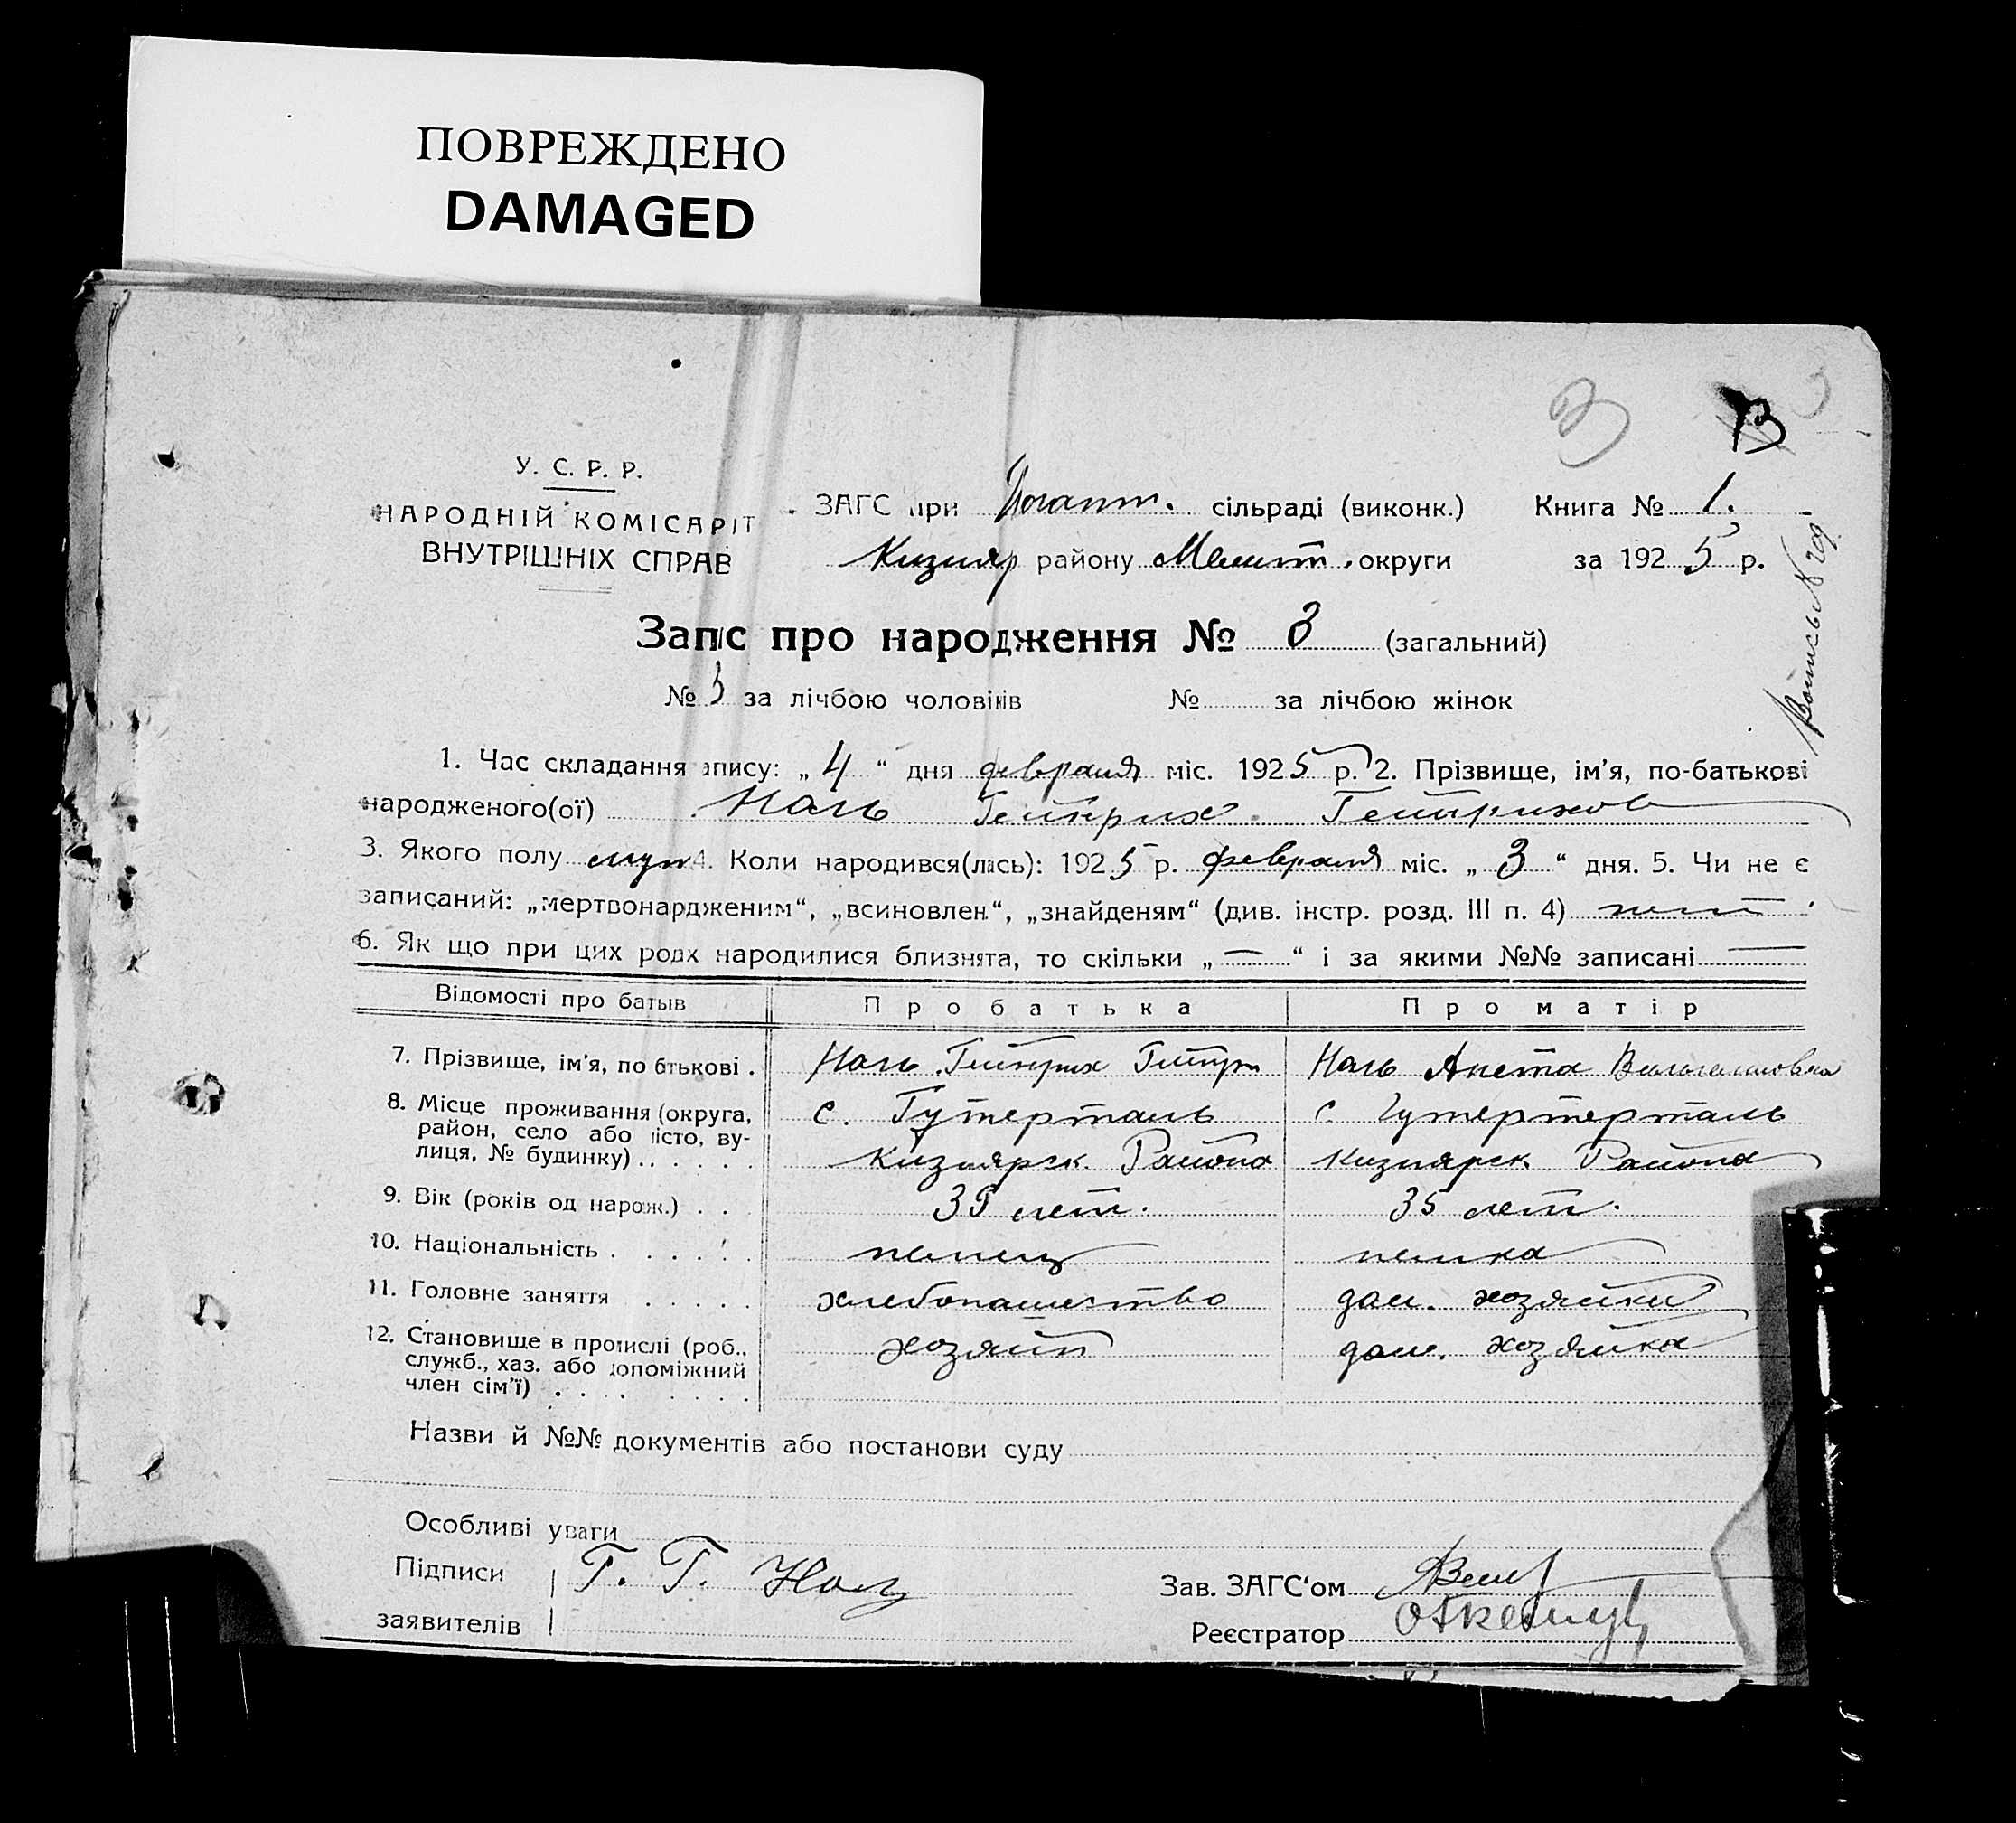 ПОВРЕЖДЕНО
DAMAGED
3
13
У. С. Р. Р.
НАРОДНІЙ КОМІСАРІТ
ВНУТРІШНІХ СПРАВ
ЗАГС при сільраді (виконк.) Книга № 1.
Кизияр району Мелит. округи за 1925 р.
Запіс про народження № 3 (загальний)
№ 3 за лічбою чоловіків № за лічбою жінок
1. Час складання апису: „4“ дня февраля міс. 1925 р. 2. Прізвище, ім'я, по-батькові
народженого(ої) Наль Гейнрих Гейнрихов
3. Якого полу муж 4. Коли народився(лась): 1925 р. февраля міс. „3“ дня. 5. Чи не є
записаний: „мертвонардженим“, „всиновлен“, „знайденям“ (див. інстр. розд. III п. 4) нет
6. Як що при цих родх народилися близнята, то скільки „—“ і за якими №№ записані —
Відомості про батьів Про батька Про матір
7. Прізвище, ім'я, по бтькові . Наль Гейнрих Гейнр Наль Анета
8. Місце проживання (округа, район, село або місто, вулиця, № будинку) . . с. Гутерталь с. Гутертерталь
Кизиярск. Района Кизиярск Района
9. Вік (років од нарож.) . . 35 лет. 35 лет.
10. Національність . немец немка
11. Головне заняття хлебопашество дом. хозяйка
12. Становище в промислі (роб., служб., хаз. або допоміжний член сім'ї) . хозяин дом. хозяйка
Назви й №№ документів або постанови суду
Особливі уваги
Підписи Г. Г. Нолъ Зав. ЗАГС'ом
заявителів Реєстратор